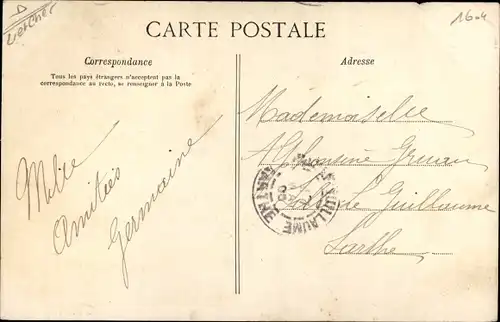 Loir et Cher
16-4
CARTE POSTALE
Correspondance
Tous les pays étrangers n'acceptent pas la
correspondance au recto, se renseigner à la Poste
Mille
Amitiés
Germaine
Adresse
Mademoiselle
Guillaume
Sarthe
GUILLAUME
SARTHE